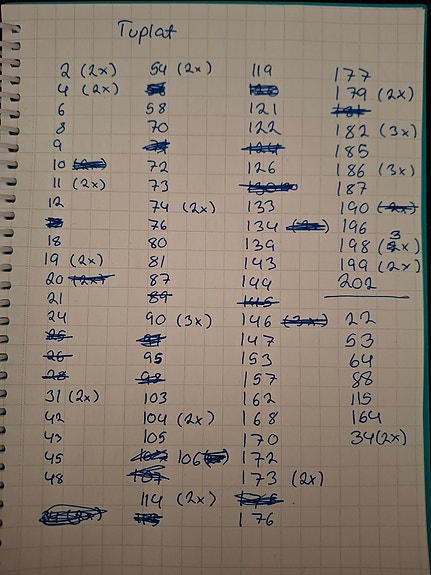 Tuplat
2 (2x)
4 (2x)
6
8
9
10
11 (2x)
12
18
19 (2x)
20 (2x)
21
24
25
26
28
31 (2x)
42
43
45
48
54 (2x)
58
70
72
73
74 (2x)
76
80
81
87
89
90 (3x)
95
98
103
104 (2x)
105
106
107
114 (2x)
119
121
122
124
126
133
134
139
143
144
145
146 (3x)
147
153
157
162
168
170
172
173 (2x)
176
177
179 (2x)
181
182 (3x)
185
186 (3x)
187
190 (2x)
196
198 (3x)
199 (2x)
202
22
53
64
88
115
164
34 (2x)